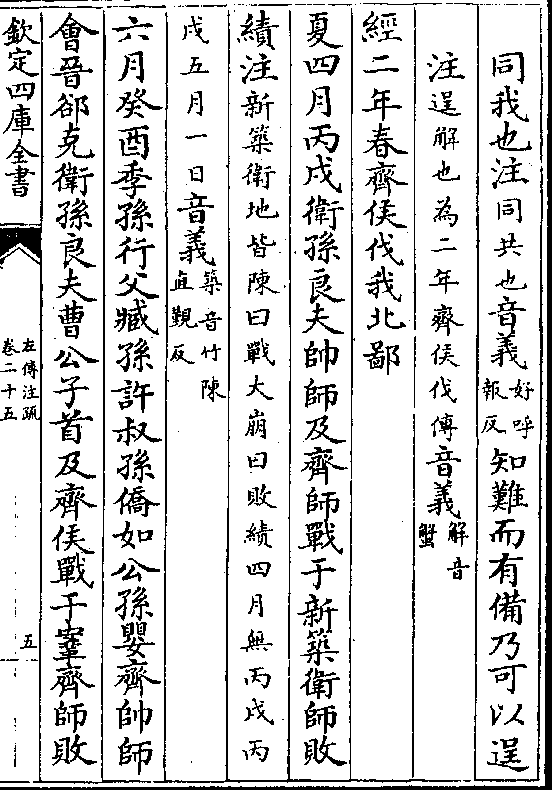 同我也注同共也音義好呼報反知難而有備乃可以逞
注逞解也為二年齊侯伐傳音義解音蟹
經二年春齊侯伐我北鄙
夏四月丙戌衛孫良夫帥師及齊師戰于新築衛師敗
績注新築衛地皆陳曰戰大崩曰敗績四月無丙戌丙
戌五月一日音義築音竹陳直覲反
六月癸酉季孫行父臧孫許叔孫僑如公孫嬰齊帥師
會晉郤克衛孫良夫曹公子首及齊侯戰于鞌齊師敗
欽定四庫全書
左傳注疏
卷二十五
五